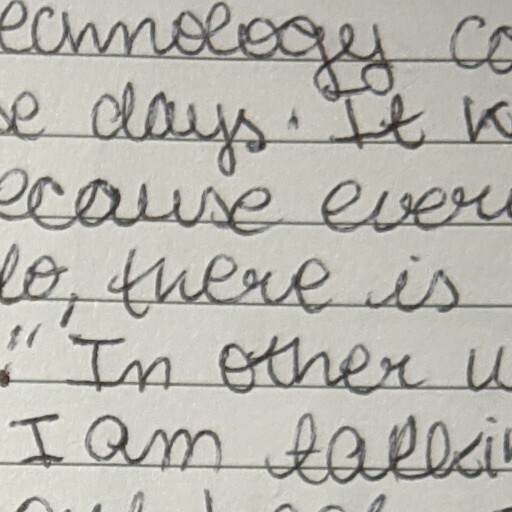 echnology co
se days. It k
ecause ever
lo, there is
" In other w
I am talkin